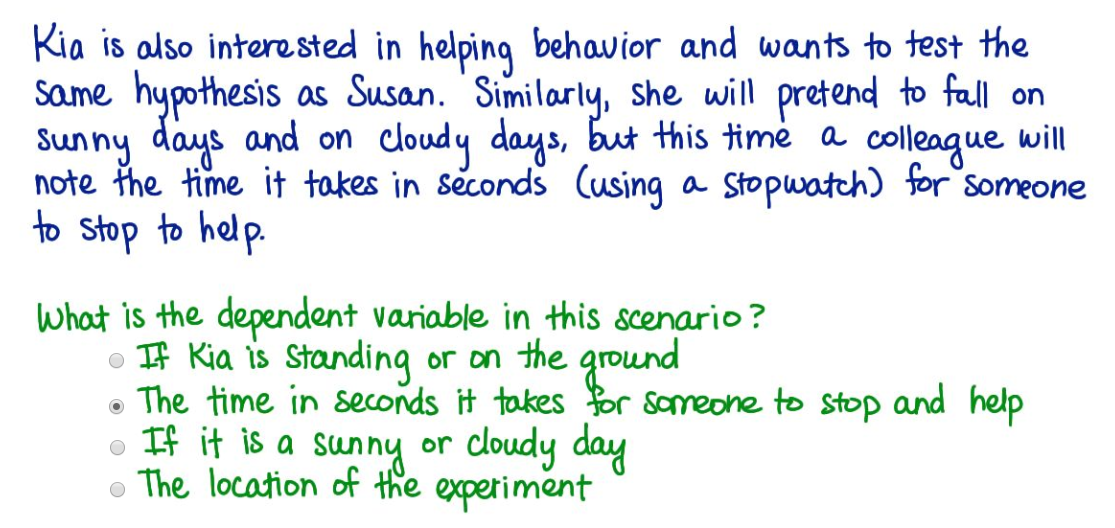 Kia is also interested in helping behavior and wants to test the
same hypothesis as Susan. Similarly, she will pretend to fall on
sunny days and on cloudy days, but this time a colleague will
note the time it takes in seconds (using a stopwatch) for someone
to stop to help.
What is the dependent variable in this scenario?
If Kia is standing or on the ground
The time in seconds it takes for someone to stop and help
If it is a sunny or cloudy day
The location of the experiment